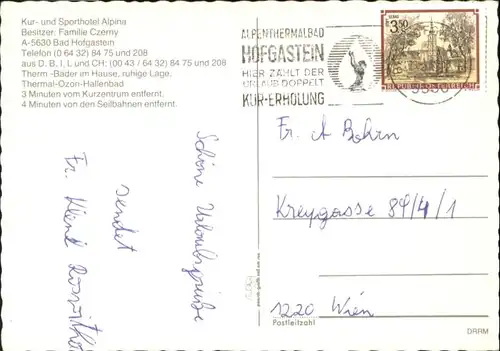 Kur- und Sporthotel Alpina
Besitzer: Familie Czerny
A-5630 Bad Hofgastein
Telefon (0 64 32) 84 75 und 208
aus D, B, I, L und CH: (00 43 / 64 32) 84 75 und 208
Therm.-Bäder im Hause, ruhige Lage.
Thermal-Ozon-Hallenbad
3 Minuten vom Kurzentrum entfernt.
4 Minuten von den Seilbahnen entfernt.
ALPENTHERMALBAD
HOFGASTEIN
HIER ZÄHLT DER
URLAUB DOPPELT
KUR-ERHOLUNG
3.50
REPUBLIK ÖSTERREICH
Schöne Urlaubsgrüße
sendet
Fr.
Fr. A
Kreygasse 84/4/1
1220 Wien
Postleitzahl
DRRM